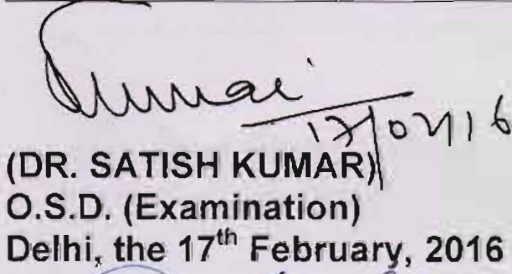 Kumar
17/02/16
(DR. SATISH KUMAR)
O.S.D. (Examination)
Delhi, the 17th February, 2016